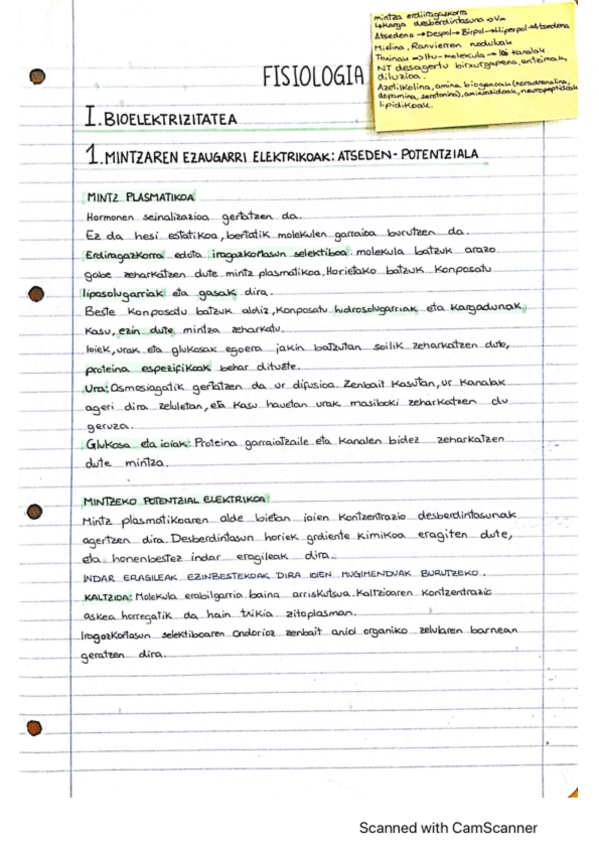 mintza erdiiragazkorra
↳Karga desberdintasuna→Vm
Atsedena→Despol→Birpol→Hiperpol→Atsedena
Mielina, Ranvierren noduluak
Toxinak→Itu-molekula→ kanalak.
NT desagertu birxurgapena, entzimak,
diluzioa.
Azetilkolina, amina biogenoak (noradrenalina,
dopamina, serotonina), aminoazidoak, neuropeptidoak
lipidikoak.
FISIOLOGIA
I. BIOELEKTRIZITATEA
1. MINTZAREN EZAUGARRI ELEKTRIKOAK: ATSEDEN-POTENTZIALA
MINTZ PLASMATIKOA
Hormonen seinalizazioa gertatzen da.
Ez da hesi estatikoa, bertatik molekulen garraioa burutzen da.
Erdiragazkorra edota iragazkortasun selektiboa: molekula batzuk arazo
gabe zeharkatzen dute mintz plasmatikoa. Horietako batzuk konposatu
liposolugarriak eta gasak dira.
Beste konposatu batzuk aldiz, konposatu hidrosolugarriak eta kargadunak
kasu, ezin dute mintza zeharkatu.
Ioiek, urak eta glukosak egoera jakin batzutan soilik zeharkatzen dute,
proteina espezifikoak behar dituzte.
Ura: Osmosiagatik gertatzen da ur difusioa. Zenbait kasutan, ur kanalak
ageri dira zeluletan, eta kasu hauetan urak masiboki zeharkatzen du
geruza.
Glukosa eta ioiak: Proteina garraiotzaile eta kanalen bidez zeharkatzen
dute mintza.
MINTZEKO POTENTZIAL ELEKTRIKOA
Mintz plasmatikoaren alde bietan ioien kontzentrazio desberdintasunak
agertzen dira. Desberdintasun horiek grdiente kimikoa eragiten dute,
eta honenbestez indar eragileak dira.
INDAR ERAGILEAK EZINBESTEKOAK DIRA IOIEN MUGIMENDUAK BURUTZEKO.
KALTZIOA: Molekula erabilgarria baina arriskutsua. Kaltzioaren kontzentrazio
askea horregatik da hain txikia zitoplasman.
Iragazkortasun selektiboaren ondorioz zenbait anioi organiko zelularen barnean
geratzen dira.
Scanned with CamScanner